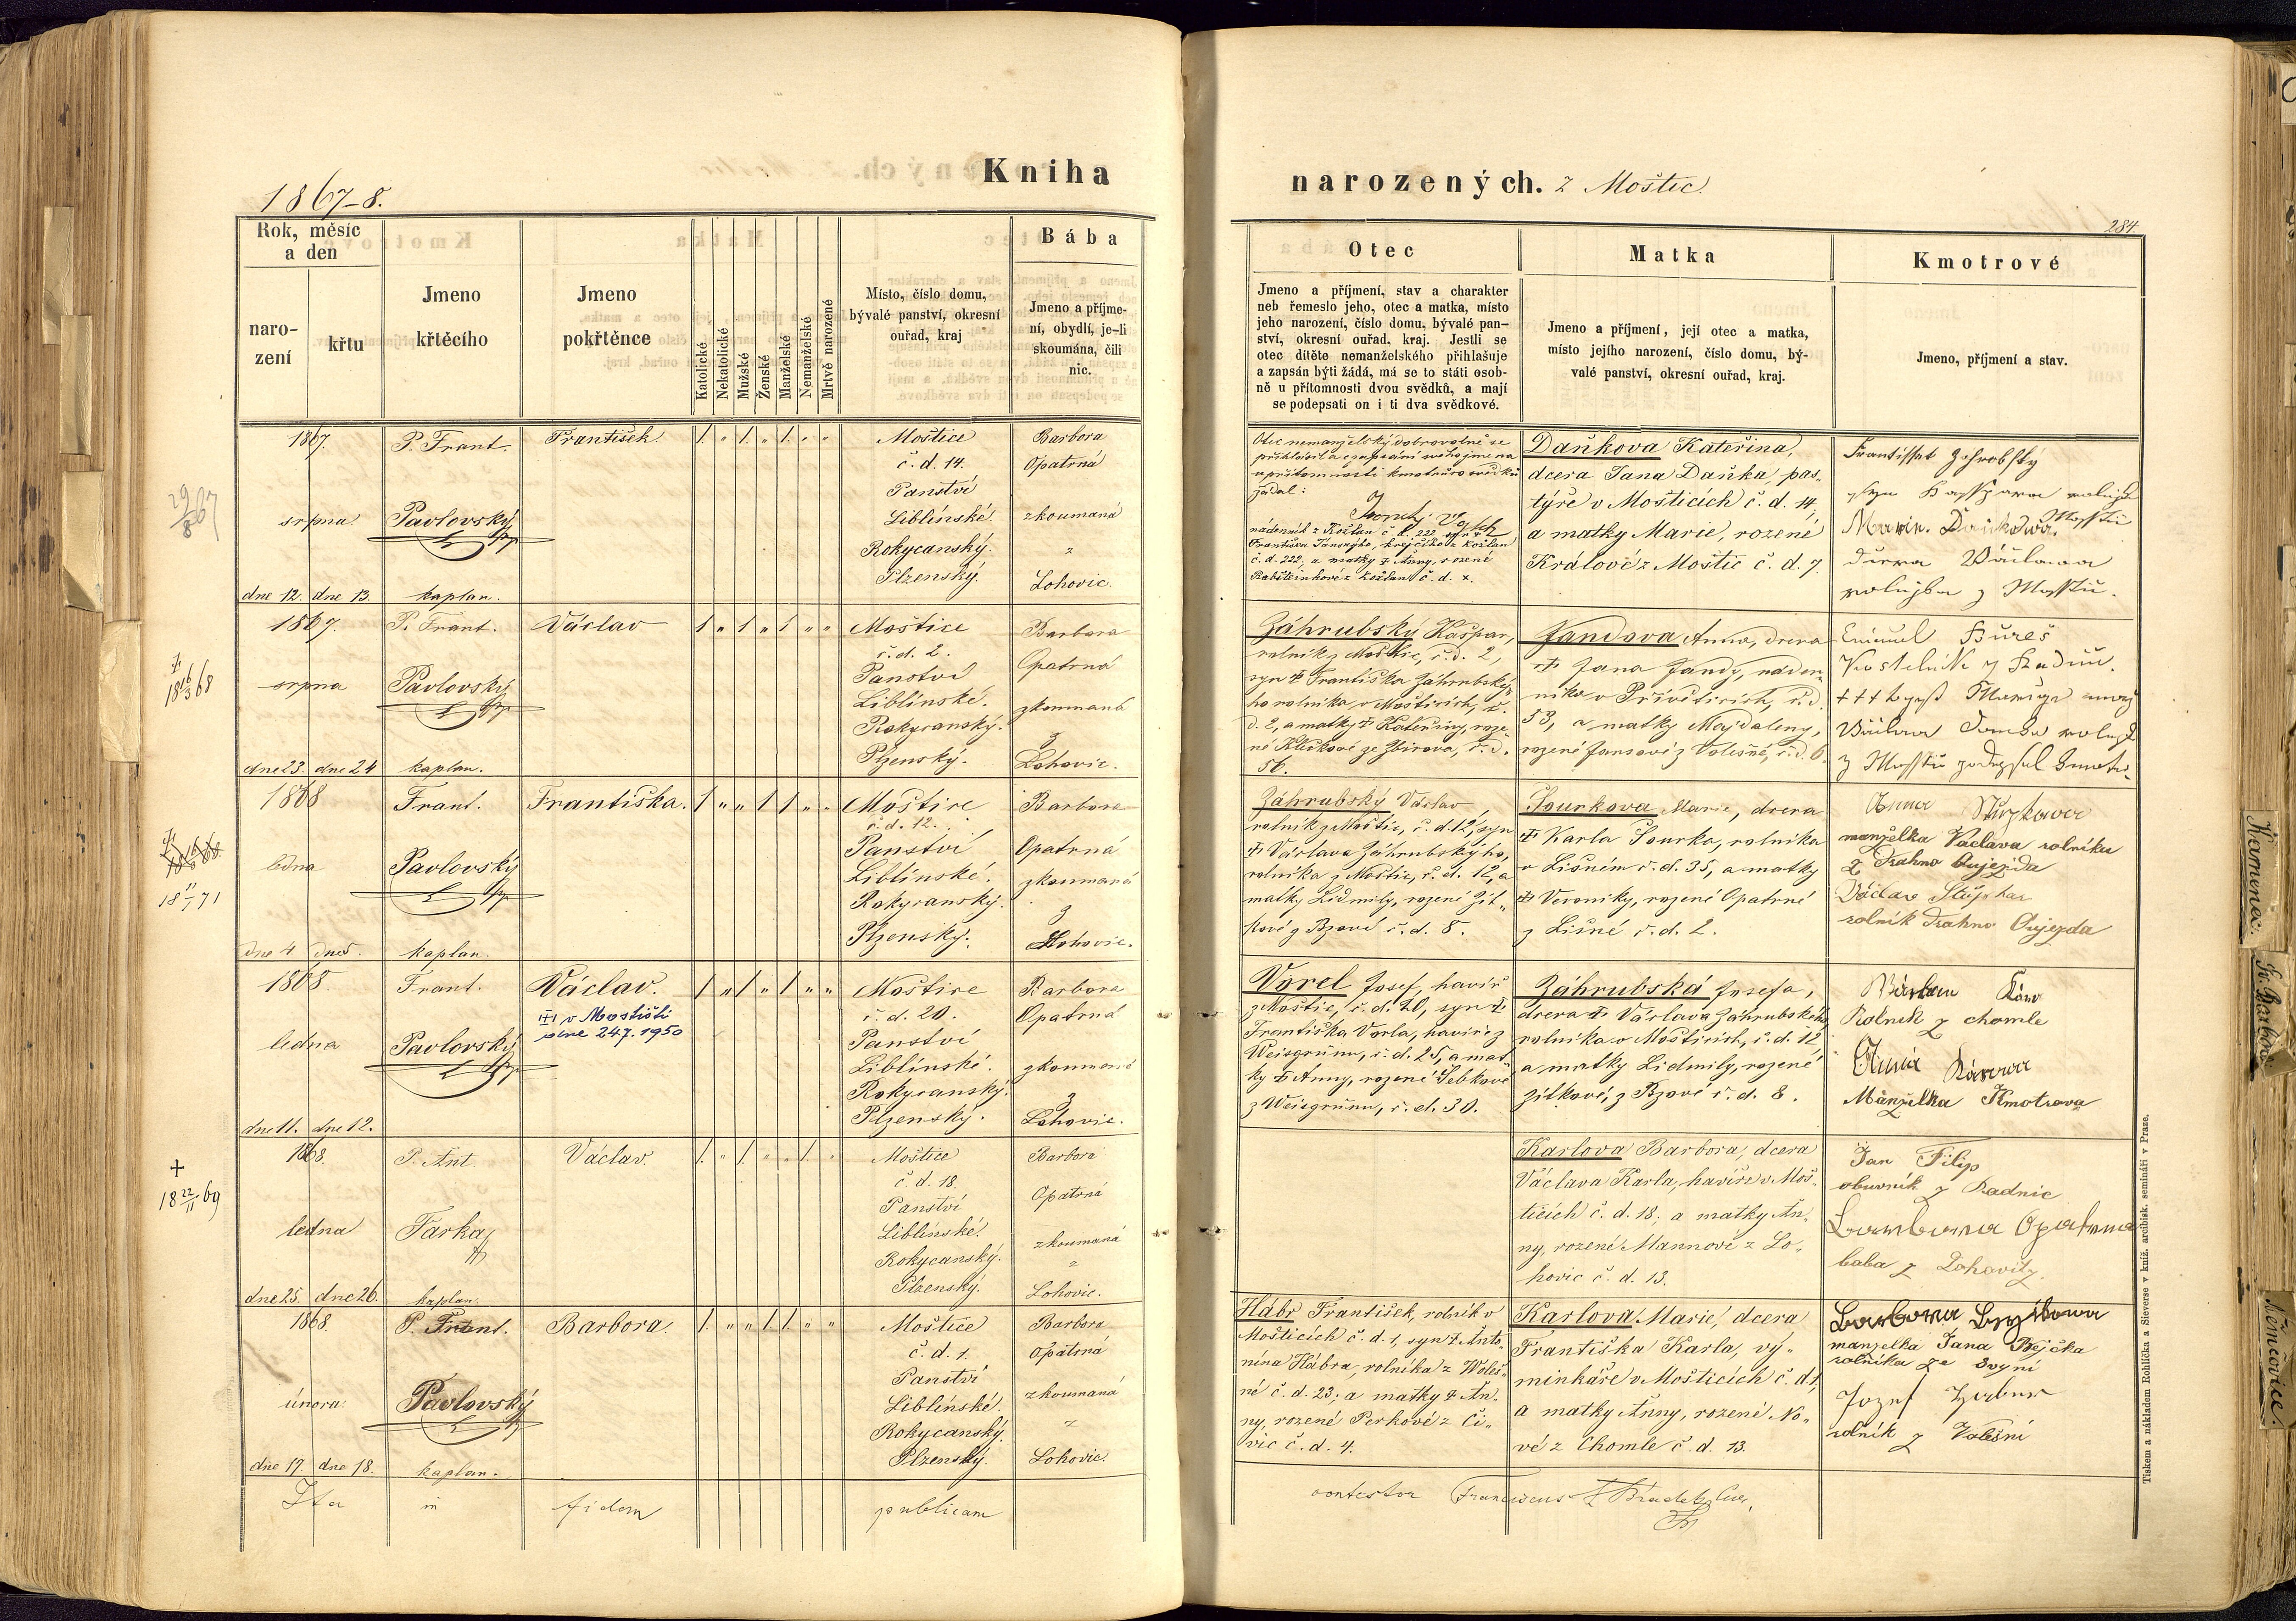 1867-8.
Kniha
narozených. z Moštic.
284
Rok, měsíc
a den
naro-
zení
křtu
Jmeno
křtěcího
Jmeno
pokřtěnce
Katolické
Nekatolické
Mužské
Ženské
Manželské
Nemanželské
Mrtvě narozené
Místo, číslo domu,
bývalé panství, okresní
ouřad, kraj
Bába
Jmeno a příjme-
ní, obydlí, je-li
skoumána, čili
nic.
Otec
Jmeno a příjmení, stav a charakter
neb řemeslo jeho, otec a matka, místo
jeho narození, číslo domu, bývalé pan-
ství, okresní ouřad, kraj. Jestli se
otec dítěte nemanželského přihlašuje
a zapsán býti žádá, má se to státi osob-
ně u přítomnosti dvou svědků, a mají
se podepsati on i ti dva svědkové.
Matka
Jmeno a příjmení, její otec a matka,
místo jejího narození, číslo domu, bý-
valé panství, okresní ouřad, kraj.
Kmotrové
Jmeno, příjmení a stav.
29/8 67
1867.
srpna
dne 12. dne 13.
P. Frant.
Pavlovský
kaplan.
František.
1. " 1. " 1. " "
Moštice
č. d. 14.
Panství
Liblínské.
Rokycanský.
Plzenský.
Barbora
Opatrná
zkoumaná
z
Lohovic.
Otec nemanželský dobrovolně se
přihlásil a zapsání svého jmena
u přítomnosti kmotrů co svědků
žádal:
nádenník z Kožlan č. d. 222, syn
č. d. 222, a matky † Anny, rozené
Daňkova Kateřina,
dcera Jana Daňka, pas-
týře v Mošticích č. d. 14,
a matky Marie, rozené
Králové z Moštic č. d. 7.
† 18 16/3 68
1867.
srpna
dne 23. dne 24
P. Frant.
Pavlovský
kaplan.
Václav
1 " 1 " 1 " "
Moštice
č. d. 2.
Panství
Liblínské.
Rokycanský.
Plzenský.
Barbara
Opatrná
zkoumaná
z
Lohovic.
Záhrubský Kašpar,
rolník z Moštic, č. d. 2,
syn † Františka Záhrubský-
ho rolníka v Mošticích, č.
d. 2, a matky † Kateřiny, roze-
né Klickové ze Zbirova, č. d.
56.
Jandova Anna, dcera
† Jana Jandy, náden-
níka v Přívěticích, č. d.
53, a matky Majdaleny,
rozené Jansové z Volešné, č. d. 6.
Bureš
18 11/1 71
1868
ledna
dne 4 dne 5.
Frant.
Pavlovský
kaplan.
Františka.
1 " " 1 1 " "
Moštice
č. d. 12.
Panství
Liblínské.
Rokycanský.
Plzenský.
Barbora
Opatrná
zkoumaná
z
Lohovic.
Záhrubský Václav
rolník z Moštic, č. d. 12, syn
† Václava Záhrubskýho,
rolníka z Moštic, č. d. 12, a
matky Lidmily, rozené Žit-
kové z Bzové č. d. 8.
Sourkova Marie, dcera
† Karla Sourka, rolníka
v Lišném č. d. 35, a matky
† Veroniky, rozené Opatrné
z Lišné č. d. 2.
Anna
manželka Václava rolníka
z Drahno Aujezda
Václav
rolník Drahno Aujezda
1868.
ledna
dne 11. dne 12.
Frant.
Pavlovský
Václav.
††† v Mostišti
dne 24.7.1950
1 " 1 " 1 " "
Moštice
č. d. 20.
Panství
Liblínské.
Rokycanský.
Plzenský.
Barbora
Opatrná
zkoumaná
z
Lohovic.
Vorel Josef, havíř
z Moštic, č. d. 20, syn †
Františka Vorla, havíře z
Weisgrünu, č. d. 25, a mat-
ky † Anny, rozené Sebkové
z Weisgrünu, č. d. 30.
Záhrubská Josefa,
dcera † Václava Záhrubského
rolníka v Mošticích, č. d. 12
a matky Lidmily, rozené
Žitkové, z Bzové č. d. 8.
Rolník z chomle
Anna
Manželka Kmotrova
† 18 22/11 69
1868.
ledna
dne 25. dne 26.
P. Ant
Farka
kaplan.
Václav.
1. " 1. " " 1. "
Moštice
č. d. 18.
Panství
Liblínské.
Rokycanský.
Plzenský.
Barbora
Opatrná
zkoumaná
z
Lohovic.
Karlova Barbora, dcera
Václava Karla, havíře v Moš-
ticích č. d. 18, a matky An-
ny, rozené Mannové z Lo-
hovic č. d. 13.
Jan Filip
obuvník z Radnic
Barbora Opatrna
baba z Lohovitz
1868.
února.
dne 17. dne 18.
P. Frant.
Pavlovský
kaplan.
Barbora.
1. " " 1. 1. " "
Moštice
č. d. 1.
Panství
Liblínské.
Rokycanský.
Plzenský.
Barbora
Opatrná
zkoumaná
z
Lohovic.
Hábr František, rolník v
Mošticích č. d. 1, syn † Anto-
nína Hábra, rolníka z Woleš-
né č. d. 23; a matky † An-
ny, rozené Perkové z Či-
vic č. d. 4.
Karlova Marie, dcera
Františka Karla, vý-
minkáře v Mošticích č. d. 1,
a matky Anny, rozené No-
vé z Chomle č. d. 13.
Barbora
manzelka Jana Bejčka
rolníka ze Svyní
Jozef
rolník z Volešní
Ita in fidem publicam contestor Franciscus
Tiskem a nákladem Rohlíčka a Sieverse v kníž. arcibisk. semináři v Praze.
Kovmenec.
Sv. Barbora
Němčovice.